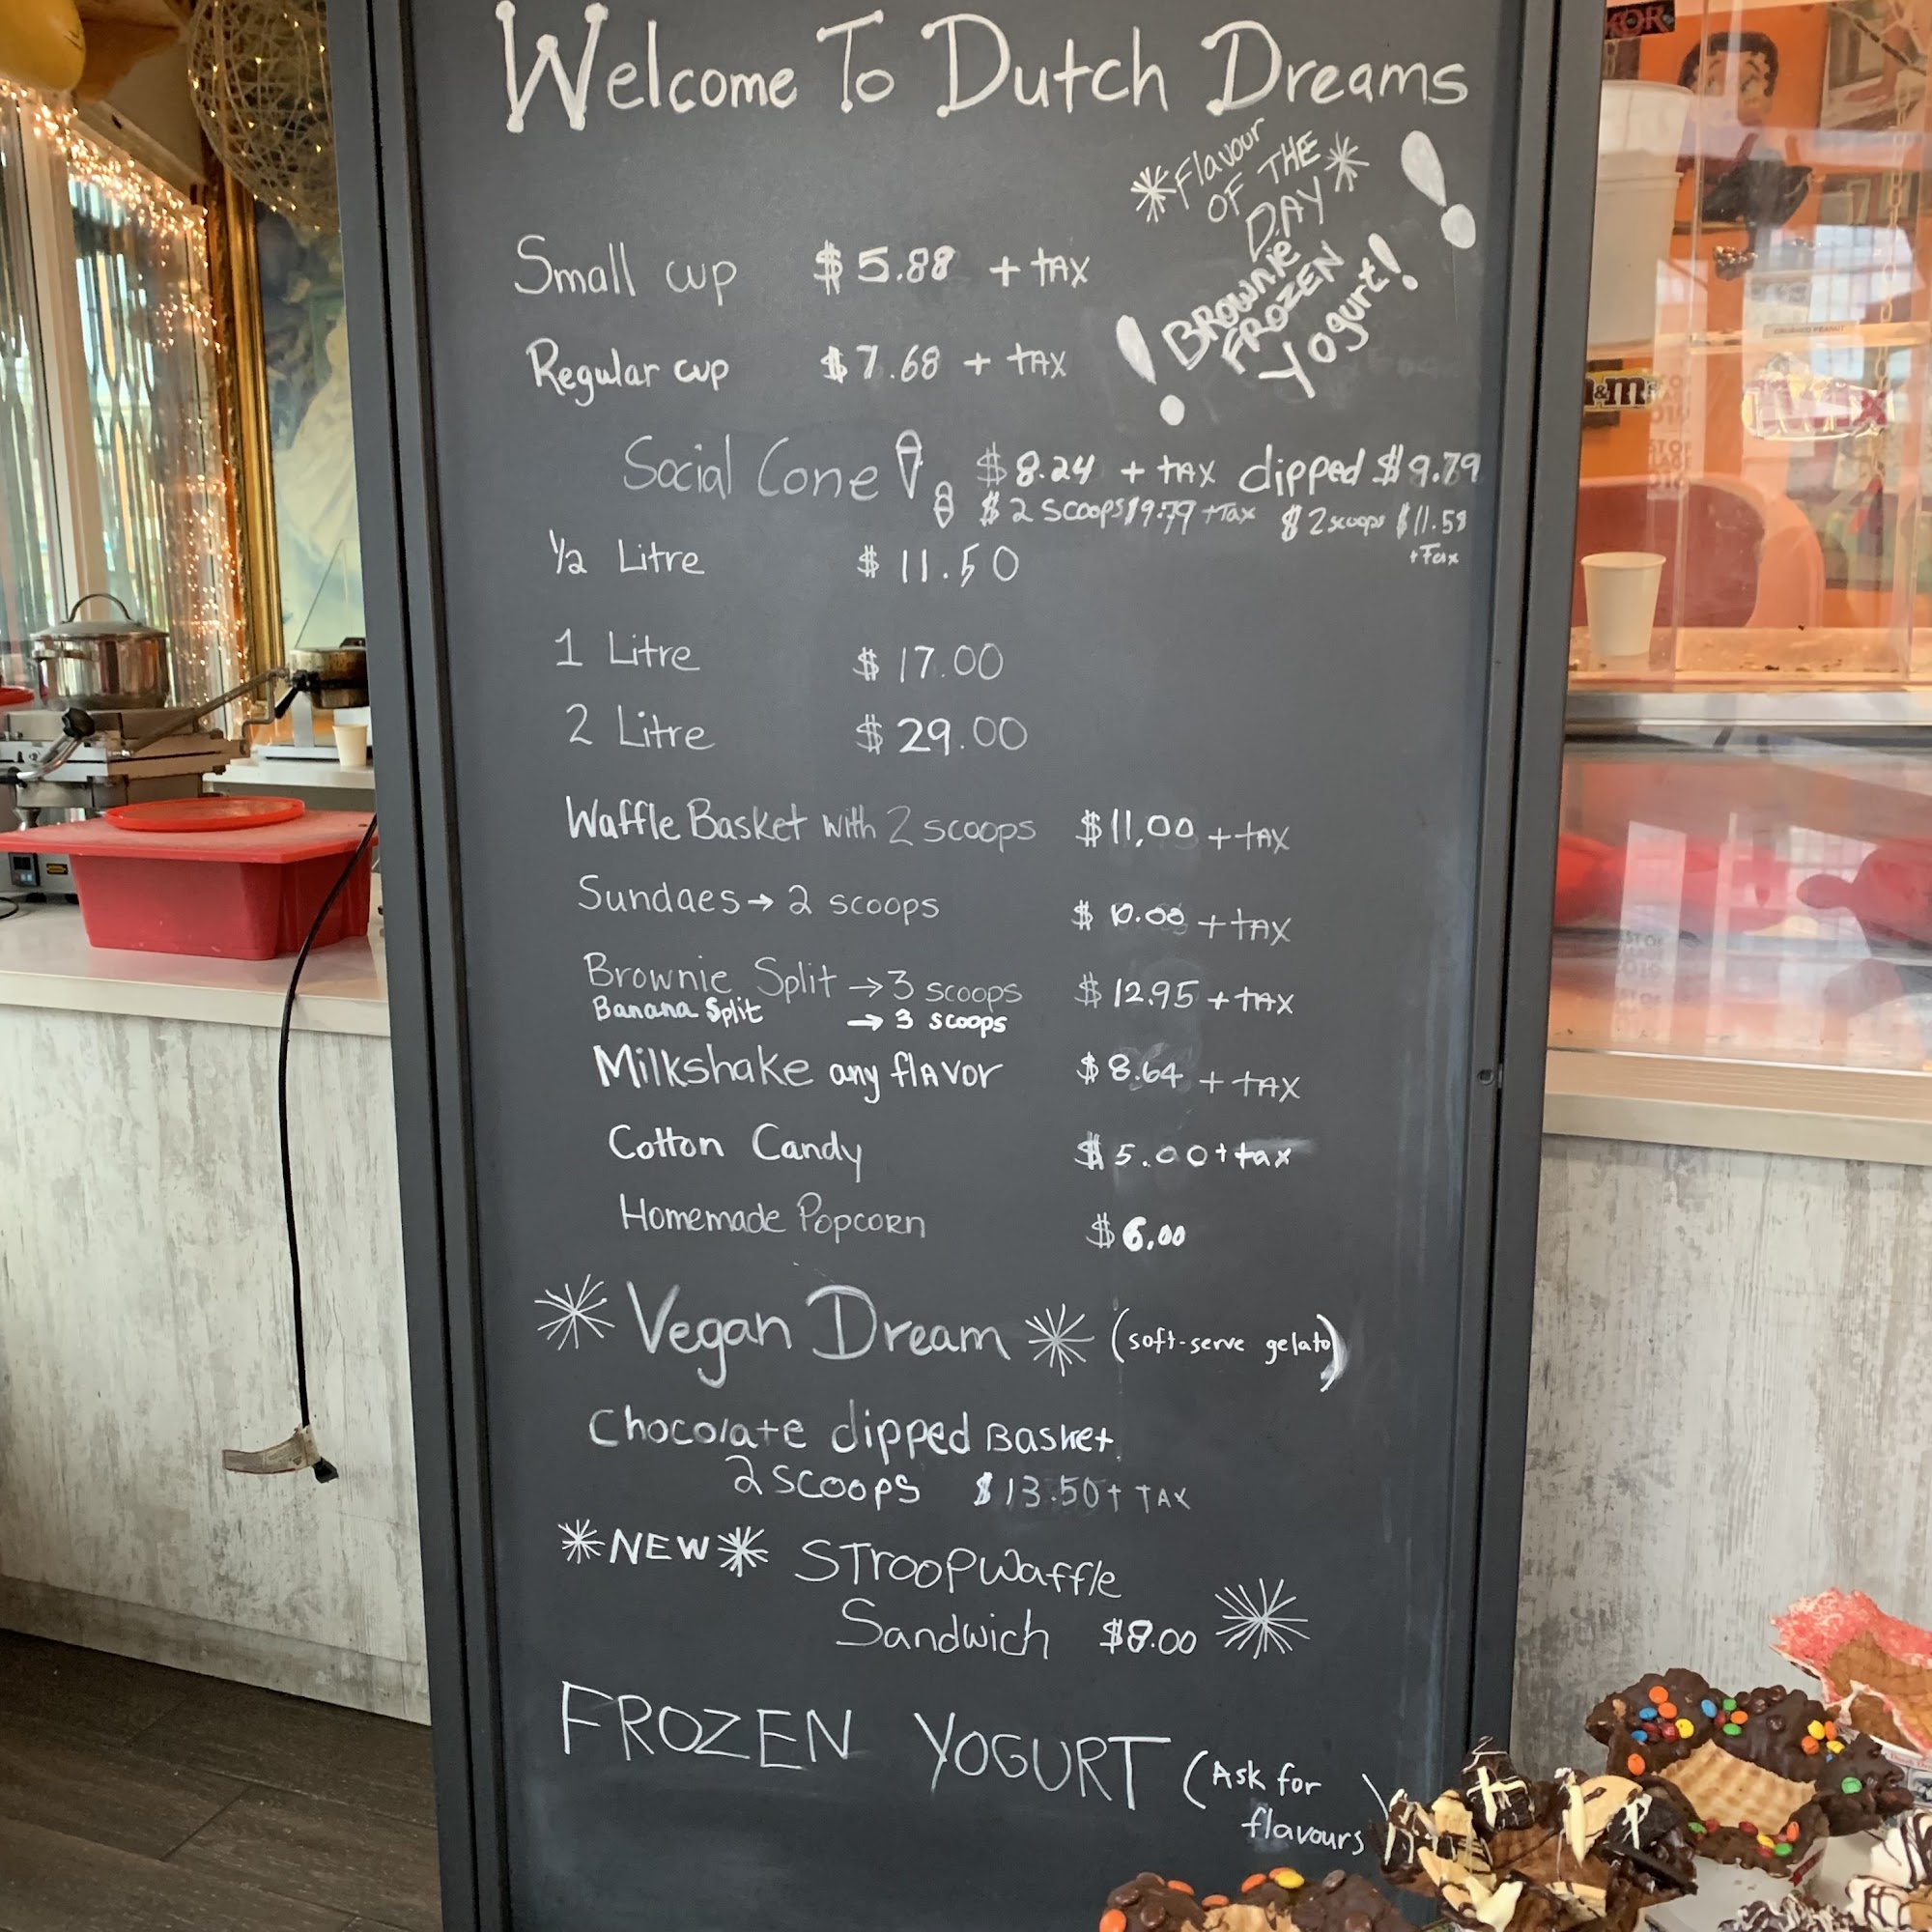 Welcome To Dutch Dreams
*Flavour
OF THE*
DAY
! BROWNIE
FROZEN
Yogurt! !
Small cup $5.88 + tAX
Regular cup $7.68 + tAX
Social Cone $8.24 + tAX dipped $9.79
$ 2 scoops $9.79 +Tax $ 2 scoops $11.58
+Tax
1/2 Litre $ 11.50
1 Litre $ 17.00
2 Litre $ 29.00
Waffle Basket with 2 scoops $11.00 + tAX
Sundaes → 2 scoops $ 10.00 + tAX
Brownie Split → 3 scoops $ 12.95 + tAX
Banana Split → 3 scoops
Milkshake any flAvor $ 8.64 + tAX
Cotton Candy $ 5.00 + tax
Homemade Popcorn $ 6.00
* Vegan Dream * (soft-serve gelato)
Chocolate dipped Basket
2 scoops $13.50 + TAX
*NEW* STroopWaffle
Sandwich $8.00 *
FROZEN YOGURT (Ask for
flavours)
CRUSHED PEANUT
m&m's